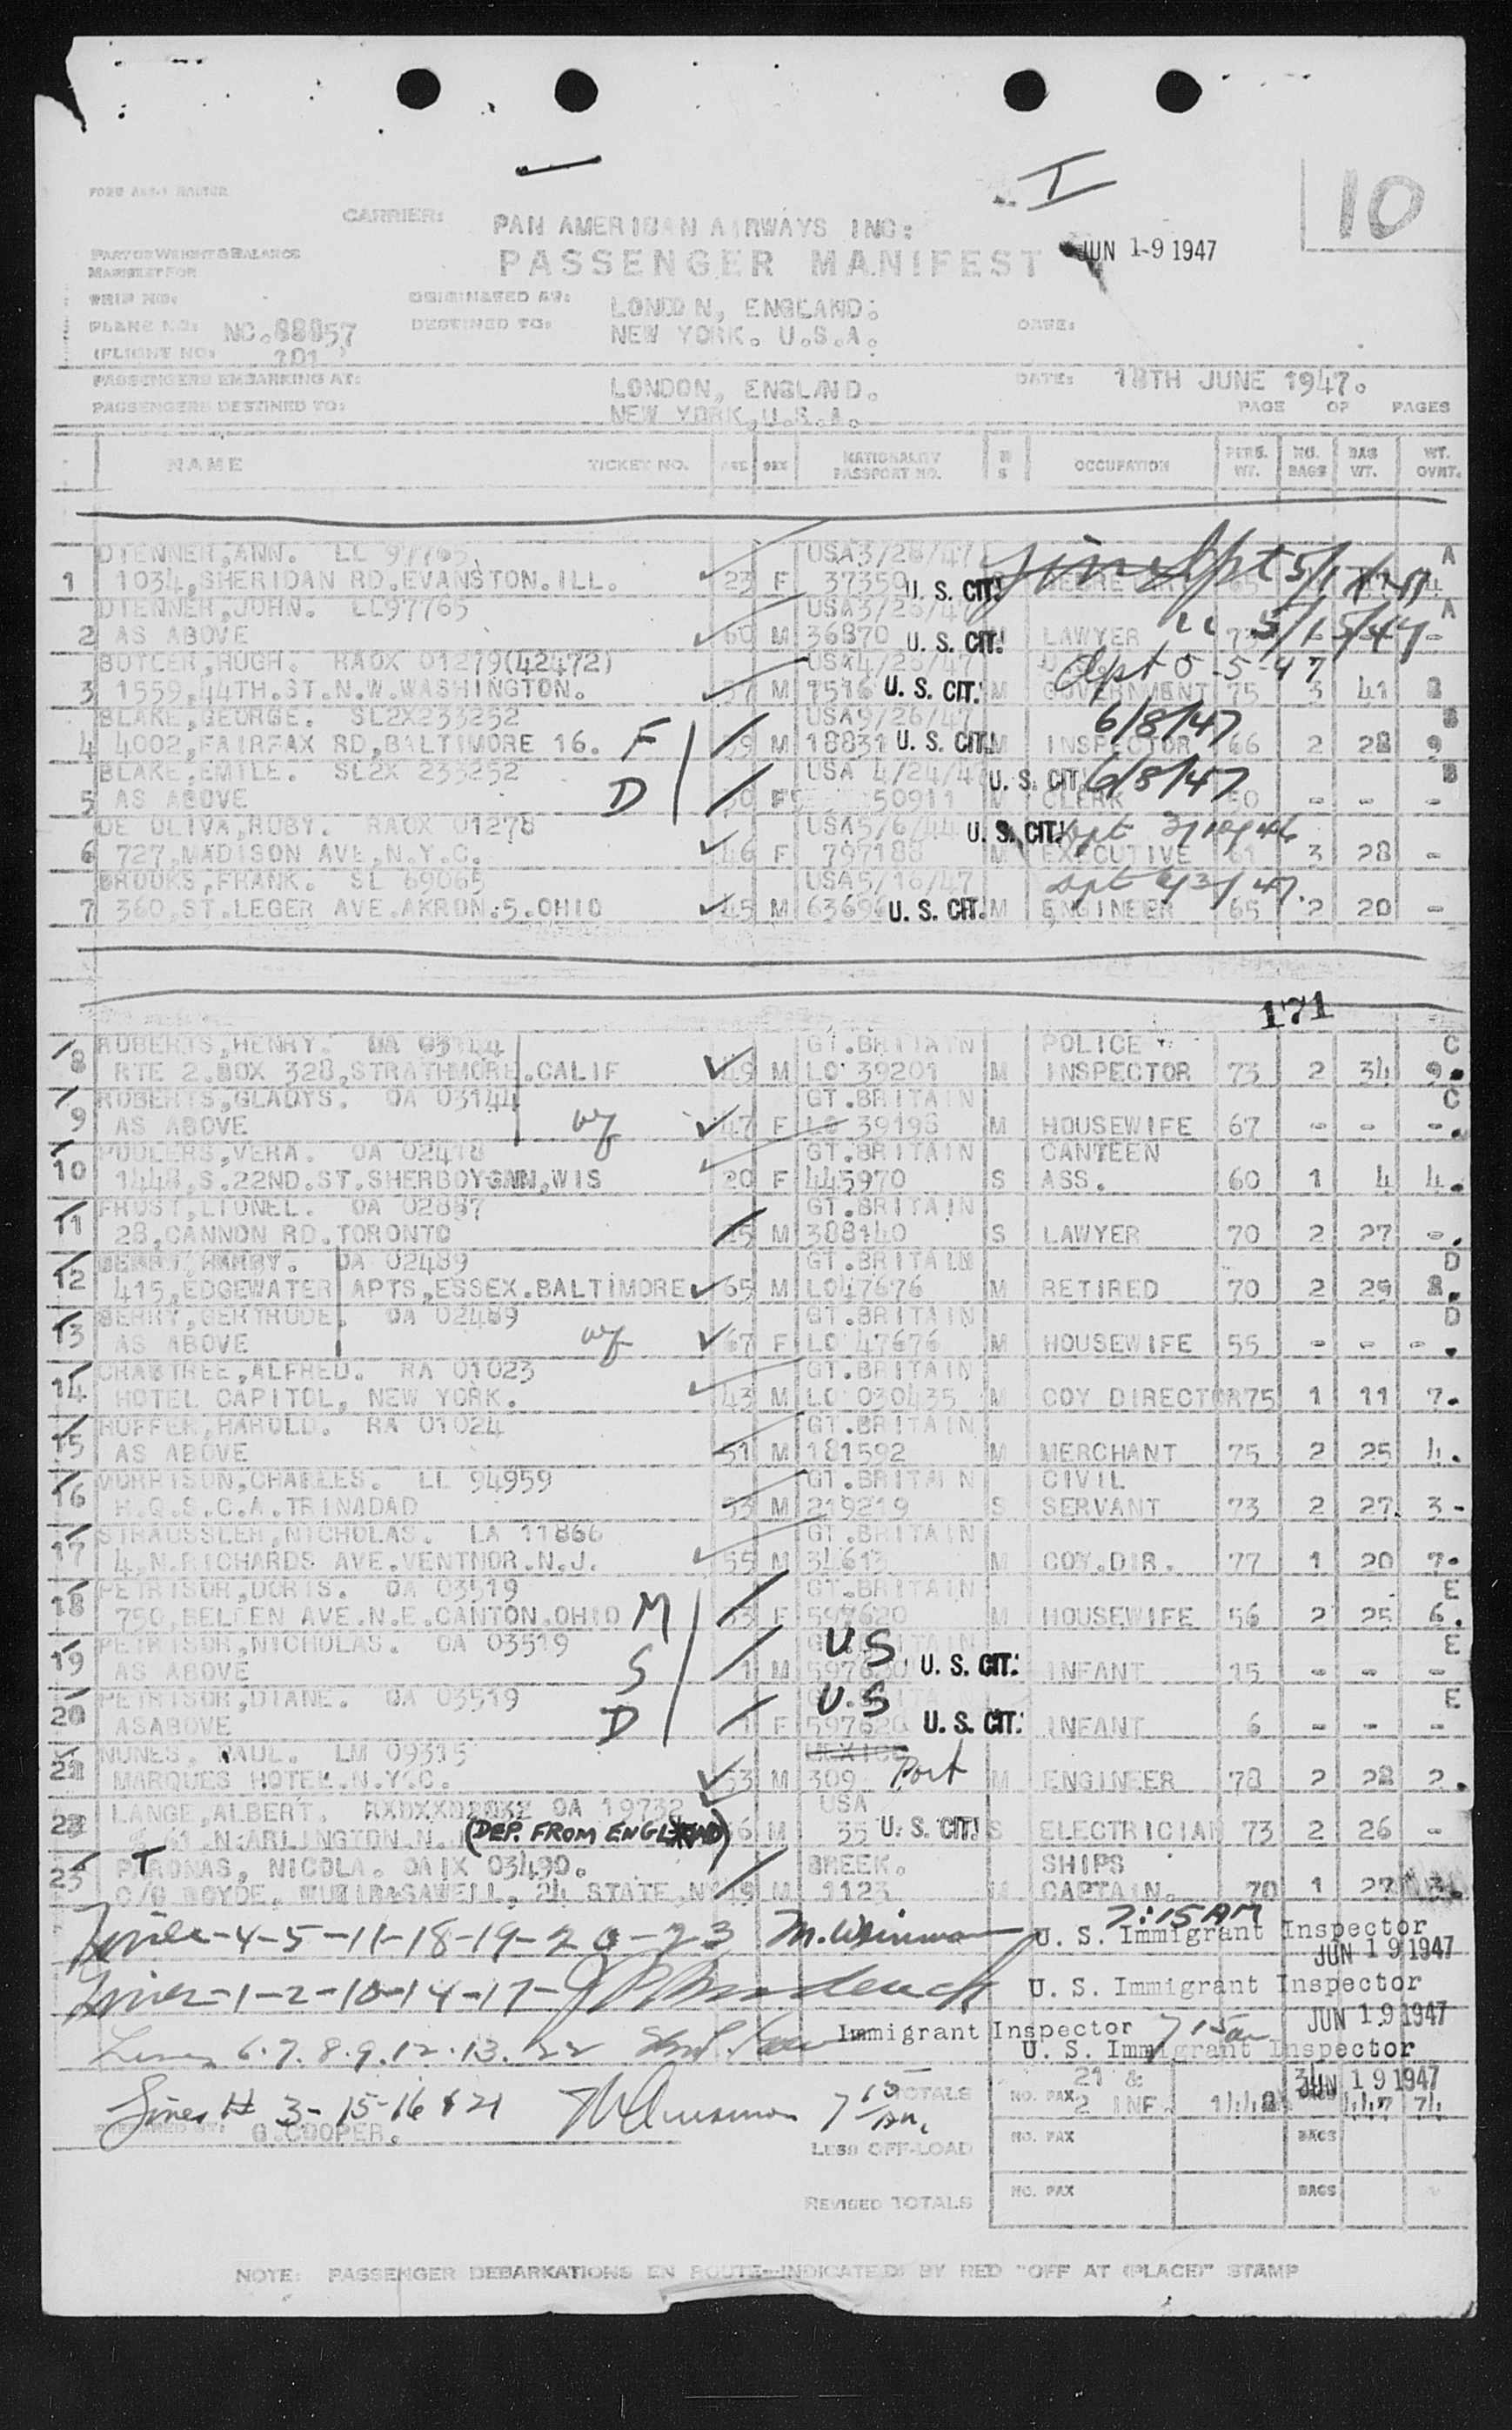 I
10
CARRIER: PAN AMERICAN AIRWAYS INC:
PASSENGER MANIFEST
JUN 1-9 1947
PART OF WEIGHT & BALANCE
MANIFEST FOR
TRIP NO:
ORIGINATED AT: LONDON, ENGLAND:
PLANE NO: NC.88857
DESTINED TO: NEW YORK. U.S.A.
DATE:
(FLIGHT NO:
PASSENGERS EMBARKING AT: LONDON, ENGLAND.
DATE: 18TH JUNE 1947.
PASSENGERS DESTINED TO: NEW YORK, U.S.A.
PAGE OF PAGES
NAME TICKET NO. AGE SEX NATIONALITY PASSPORT NO. M S OCCUPATION PERS. WT. NO. BAGS BAG WT. WT. OVRT.
DIENNER, ANN. LL 97765 USA3/28/47 A
1 1034, SHERIDAN RD. EVANSTON. ILL. 23 F 37359 U. S. CIT.
DIENNER, JOHN. LL97765 A
2 AS ABOVE 60 M 36870 U. S. CIT. LAWYER 5/15/47 -
BUTLER, HUGH. RAOX 01279(42472) USA4/26/47 5-5-47
3 1559, 44TH. ST. N.W. WASHINGTON. M U. S. CIT. M GOVERNMENT 75 3 41
BLAKE, GEORGE. SL2X233252 USA9/26/47 6/8/47
4 4002, FAIRFAX RD, BALTIMORE 16. F M 18831 U. S. CIT. M INSPECTOR 66 2 28 9
BLAKE, EMILE. SL2X 233252 USA 4/24/4 U. S. CIT. 6/8/47
5 AS ABOVE D 50911 CLERK - - -
DE OLIVA, RUBY. RAOX 01278 USA5/6/44 U. S. CIT.
6 727, MADISON AVE, N.Y.C. 46 F 797188 M EXECUTIVE 61 3 28 -
BROOKS, FRANK. SL 69065 USA5/16/47
7 360, ST. LEGER AVE. AKRON. 5. OHIO 45 M 63696 U. S. CIT. M ENGINEER 65 2 20 -
171
ROBERTS, HENRY. OA 03144 GT. BRITAIN POLICE C
8 RTE 2. BOX 328, STRATHMORE. CALIF 49 M LO 39201 M INSPECTOR 73 2 34 9.
ROBERTS, GLADYS. OA 03144 GT. BRITAIN C
9 AS ABOVE wf 47 F LO 39198 M HOUSEWIFE 67 - - -
PUDLERS, VERA. OA 02418 GT. BRITAIN CANTEEN
10 1448, S. 22ND. ST. SHERBOYGAN, WIS 20 F 445970 S ASS. 60 1 4 4.
FROST, LIONEL. OA 02887 GT. BRITAIN
11 28, CANNON RD. TORONTO M 388140 S LAWYER 70 2 27 -.
BERRY, HARRY. OA 02489 GT. BRITAIN D
12 415, EDGEWATER APTS, ESSEX. BALTIMORE 65 M LO47676 M RETIRED 70 2 29
BERRY, GERTRUDE. OA 02489 GT. BRITAIN D
13 AS ABOVE wf 67 F LO 47676 M HOUSEWIFE 55 - - -.
CRABTREE, ALFRED. RA 01023 GT. BRITAIN
14 HOTEL CAPITOL, NEW YORK. 43 M LO 030435 M COY DIRECTOR 75 1 11 7.
RUFFER, HAROLD. RA 01024 GT. BRITAIN
15 AS ABOVE 51 M 181592 M MERCHANT 75 2 25 4.
CHARLES. LL 94959 GT. BRITAIN CIVIL
16 H.Q.S.C.A. TRINADAD 53 M 219219 S SERVANT 73 2 27. 3 -
STRAUSSLER, NICHOLAS. LA 11866 GT. BRITAIN
17 4, N. RICHARDS AVE. VENTNOR. N.J. 55 M 34613 M COY. DIR. 77 1 20 7.
PETRISOR, DORIS. OA 03519 GT. BRITAIN E
18 750, BELDEN AVE. N.E. CANTON. OHIO M 33 F 597620 M HOUSEWIFE 56 2 25 6.
PETRISOR, NICHOLAS. OA 03519 US E
19 AS ABOVE S 1 M U. S. CIT. INFANT 15 - - -
PETRISOR, DIANE. OA 03519 US E
20 ASABOVE D F 597620 U. S. CIT. INFANT 6 - - -
NUNES. RAUL. LM 09315 MEXICO
21 MARQUES HOTEL. N.Y.C. 53 M 309 Port M ENGINEER 78 2 28 2.
22 LANGE, ALBERT. OA 19732 USA
N. ARLINGTON. N. (DEP. FROM ENGLAND) M U. S. CIT. S ELECTRICIAN 73 2 26 -
23 NICOLA. OAIX 03490. GREEK. SHIPS
24 STATE, M 1123 M CAPTAIN. 70 1 27
-4-5-11-18-19-20-23 7:15 AM
U. S. Immigrant Inspector
JUN 19 1947
-1-2-10-14-17- U. S. Immigrant Inspector
JUN 19 1947
Lines 6.7.8.9.12.13.22 Immigrant Inspector
U. S. Immigrant Inspector
JUN 19 1947
Lines 3-15-16 & 21
PREPARED BY: G. COOPER.
TOTALS NO. PAX 21 & 2 INF. 74
LESS OFF-LOAD NO. PAX BAGS
REVISED TOTALS NO. PAX BAGS
NOTE: PASSENGER DEBARKATIONS EN ROUTE-INDICATED BY RED "OFF AT (PLACE)" STAMP